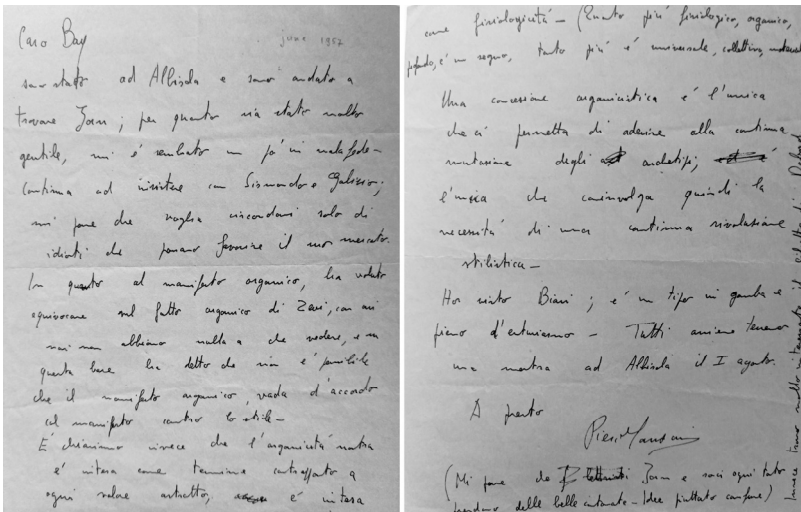 Caro Bay
june 1957
sono stato ad Albisola e sono andato a
trovare Jorn; per quanto sia stato molto
gentile, mi è sembrato un pò in malafede -
continua ad insistere con Sismondo e
mi pare che voglia circondarsi solo di
idioti che possano favorire il suo mercato.
In quanto al manifesto organico, ha voluto
equivocare sul fatto organico di Zevi, con cui
noi non abbiamo nulla a che vedere, e su
questa base ha detto che non è possibile
che il manifesto organico, vada d'accordo
col manifesto contro lo stile -
E chiarissimo invece che l'organicità nostra
è intesa come termine contrapposto a
ogni valore astratto, è intesa
come fisiologicità - (Quanto più fisiologico, organico,
profondo, è un segno, tanto più è universale, collettivo,
Una concessione organicistica è l'unica
che ci permetta di aderire alla continua
mutazione degli archetipi;
l'unica che coinvolga quindi la
necessità di una continua rivoluzione
stilistica -
Ho visto Biasi; è un tipo in gamba e
pieno d'entusiasmo - Tutti assieme teniamo
una mostra ad Albisola il I agosto.
A presto
Piero Manzoni
(Mi pare che Jorn e soci ogni tanto
prendano delle belle cantonate - Idee piuttosto confuse)